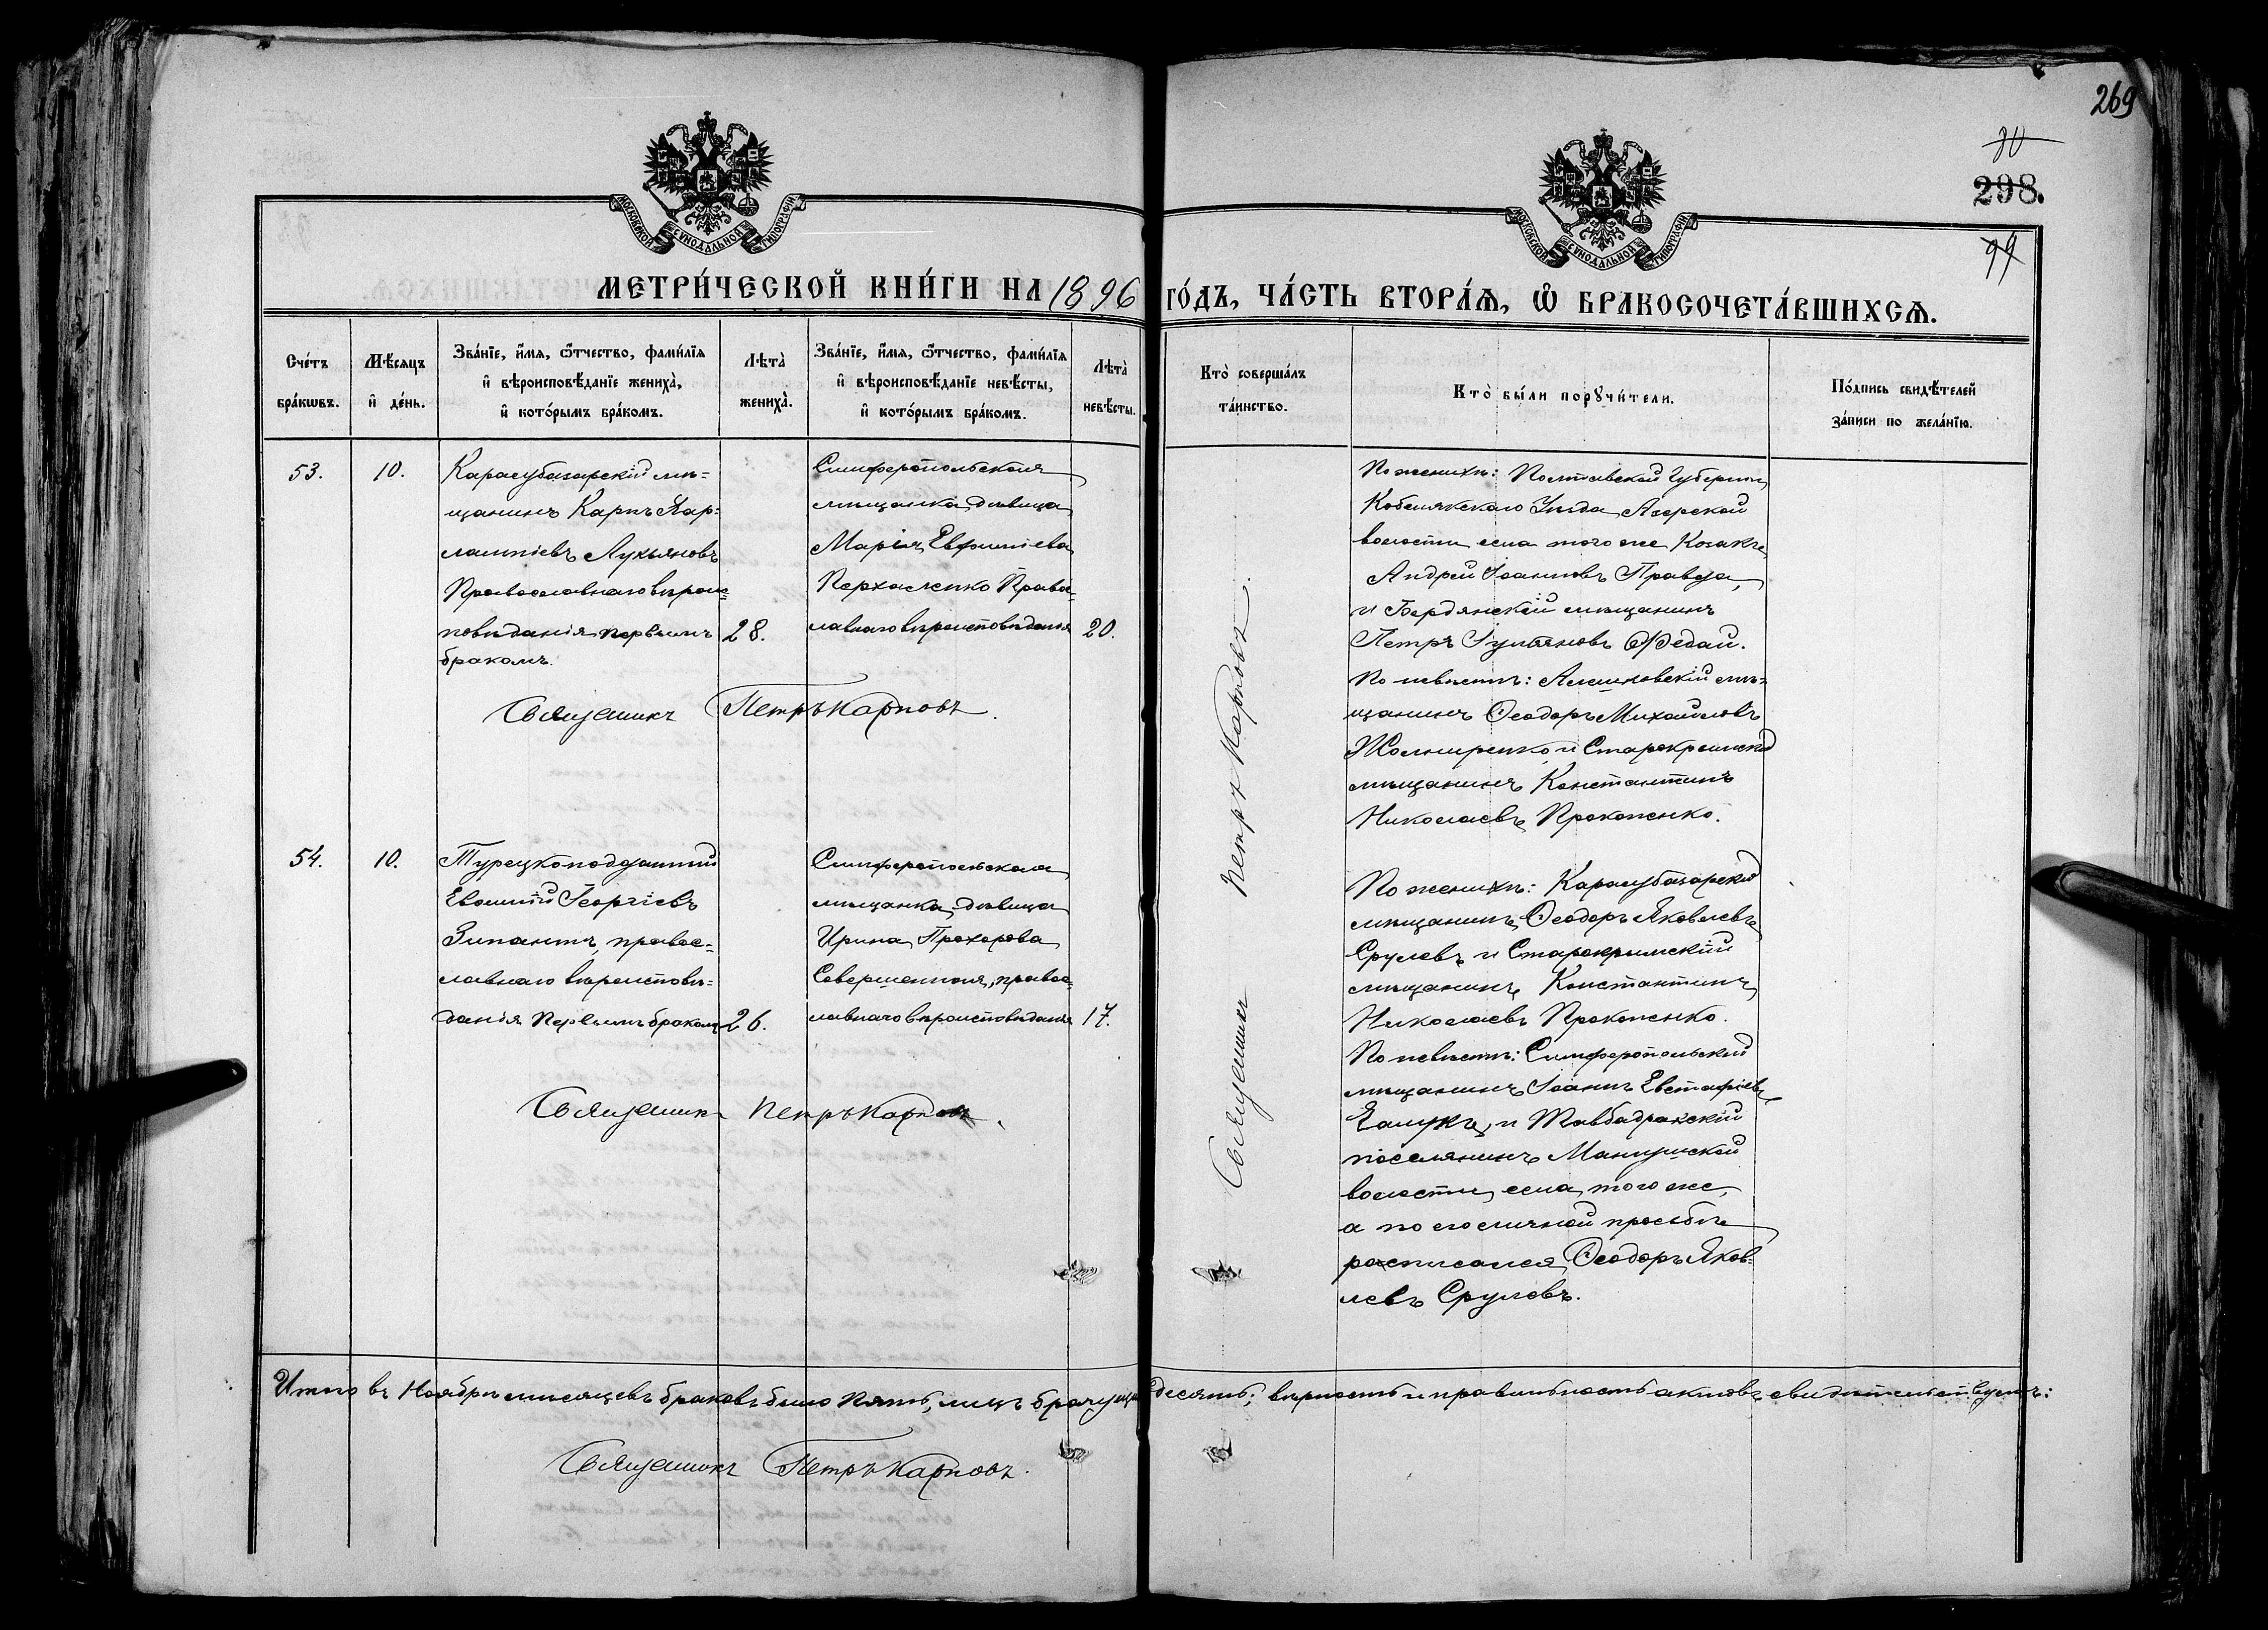 269
30
298.
99
МОСКОВСКОЙ СѴНОДАЛЬНОЙ ТИПОГРАФІИ
МОСКОВСКОЙ СѴНОДАЛЬНОЙ ТИПОГРАФІИ
МЕТРИ́ЧЕСКОЙ КНИ́ГИ НА 1896 ГО́ДЪ, ЧА́СТЬ ВТОРА́Ѧ, Ѽ БРАКОСОЧЕТА́ВШИХСѦ.
Сче́тъ
бра́кѡвъ.
Мѣ́сяцъ
и҆ де́нь.
Зва́нїе, и҆́мя, ѻ҆́тчество, фами́лїя
и҆ вѣроисповѣ́данїе жениха̀,
и҆ кото́рымъ бра́комъ.
Лѣта̀
жениха̀.
Зва́нїе, и҆́мя, ѻ҆́тчество, фами́лїя
и҆ вѣроисповѣ́данїе невѣ́сты,
и҆ кото́рымъ бра́комъ.
Лѣта̀
невѣ́сты.
Кто̀ соверша́лъ
та́инство.
Кто̀ бы́ли порꙋчи́тели.
По́дпись свидѣ́телей
за́писи по жела́нїю.
53.
10.
Карасубазарскій мѣ-
щанинъ Карпъ Хар-
лампіевъ Лукьяновъ
Православнаго вѣроис-
повѣданія первымъ
бракомъ.
28.
Симферопольская
мѣщанка, дѣвица
Марія Евфиміева
Перхаленко Правос-
лавнаго вѣроисповѣданія
20.
Священникъ Петръ Карповъ.
По женихѣ: Полтавской Губерніи,
Кобелякскаго Уѣзда,
волости села того же Козакъ
Андрей Іоанновъ Правда,
и Бердянскій мѣщанинъ
Петръ Федай.
По невѣстѣ: Алешковскій мѣ-
щанинъ Ѳеодоръ Михайловъ
Жолниренко, и Старокрымскій
мѣщанинъ Константинъ
Николаевъ Прокопенко.
54.
10.
Турецкоподданный
Евфимій Георгіевъ
правос-
лавнаго вѣроисповѣ-
данія первымъ бракомъ
26.
Симферопольская
мѣщанка, дѣвица
Ирина Прохорова
Совершенная, правос-
лавнаго вѣроисповѣданія
17.
Священникъ Петръ Карповъ.
Священникъ Петръ Карповъ.
По женихѣ: Карасубазарскій
мѣщанинъ, Ѳеодоръ Яковлевъ
Срулевъ и Старокрымскій
мѣщанинъ Константинъ
Николаевъ Прокопенко.
По невѣстѣ: Симферопольскій
мѣщанинъ Іоаннъ Евстафіевъ
и
поселянинъ Мангушской
волости, села того же,
а по его личной просьбѣ
росписался Ѳеодоръ Яков-
левъ Срулевъ.
Итого въ Ноябрѣ мѣсяцевъ браковъ было пять, лицъ брачущ десять; вѣрность и правильность актовъ свидѣтельствуетъ:
Священникъ Петръ Карповъ.